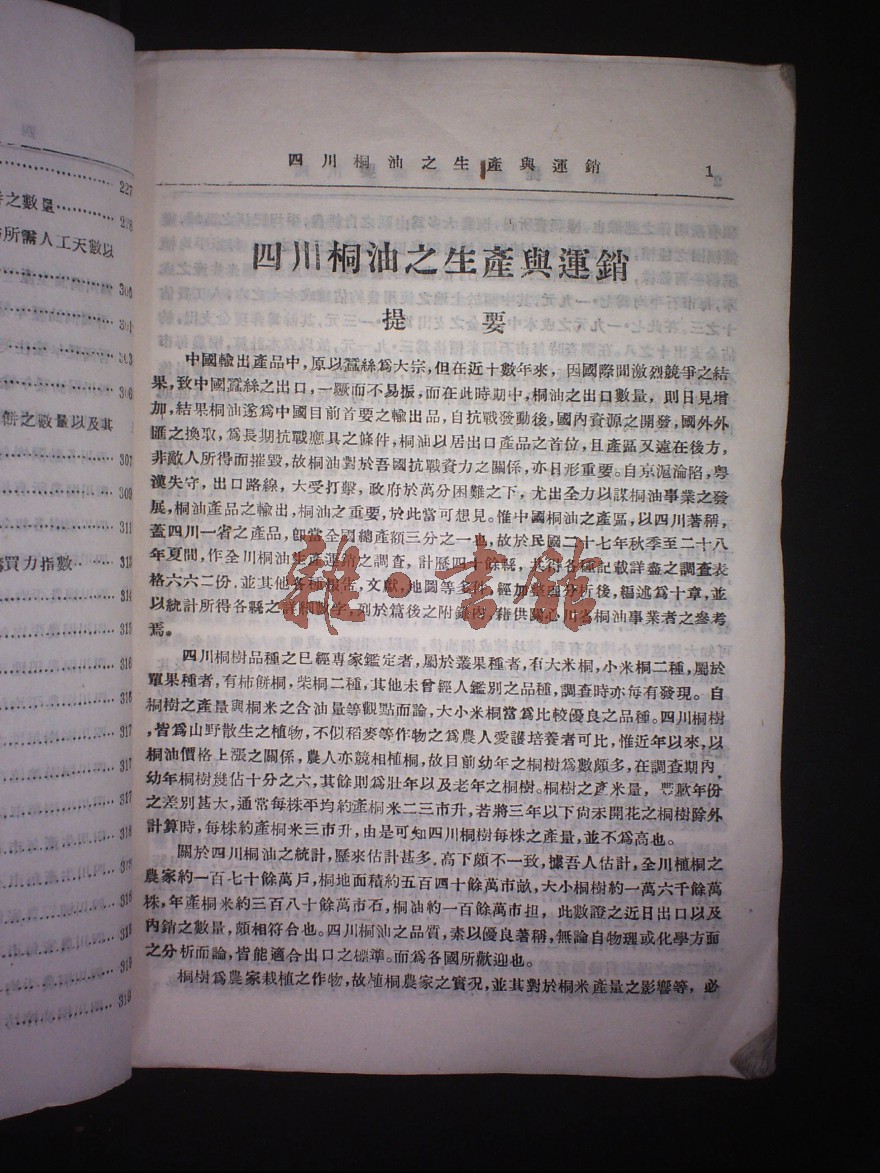 227
之數量 228
所需人工天數以
300
301
303
306
餅之數量以及其
307
309
311
購買力指數 313
314
315
316
316
317
317
317
318
318
318
318
318
319
四川桐油之生產與運銷 1
四川桐油之生產與運銷
提要
中國輸出產品中，原以蠶絲爲大宗，但在近十數年來，因國際間激烈競爭之結
果，致中國蠶絲之出口，一蹶而不易振，而在此時期中，桐油之出口數量，則日見增
加，結果桐油遂爲中國目前首要之輸出品，自抗戰發動後，國內資源之開發，國外外
匯之換取，爲長期抗戰應具之條件，桐油以居出口產品之首位，且產區又遠在後方，
非敵人所得而摧毀，故桐油對於吾國抗戰資力之關係，亦日形重要。自京滬淪陷，粵
漢失守，出口路線，大受打擊，政府於萬分困難之下，尤出全力以謀桐油事業之發
展，桐油產品之輸出，桐油之重要，於此當可想見。惟中國桐油之產區，以四川著稱，
蓋四川一省之產品，卽當全國總產額三分之一也，故於民國二十七年秋季至二十八
年夏間，作全川桐油生產運銷之調查，計歷四十餘縣，共得各種記載詳盡之調查表
格六六二份，並其他各種報告，文獻，地圖等多件，經加整理分析後，編述爲十章，並
以統計所得各縣之詳細數字，列於篇後之附錄內，藉供關心川省桐油事業者之參考
焉。
四川桐樹品種之已經專家鑑定者，屬於叢果種者，有大米桐，小米桐二種，屬於
單果種者，有柿餅桐，柴桐二種，其他未曾經人鑑別之品種，調查時亦每有發現。自
桐樹之產量與桐米之含油量等觀點而論，大小米桐當爲比較優良之品種。四川桐樹
，皆爲山野散生之植物，不似稻麥等作物之爲農人愛護培養者可比，惟近年以來，以
桐油價格上漲之關係，農人亦競相植桐，故目前幼年之桐樹爲數頗多，在調查期內，
幼年桐樹幾佔十分之六，其餘則爲壯年以及老年之桐樹。桐樹之產米量，豐歉年份
之差別甚大，通常每株平均約產桐米二三市升，若將三年以下尙未開花之桐樹除外
計算時，每株約產桐米三市升，由是可知四川桐樹每株之產量，並不爲高也。
關於四川桐油之統計，歷來估計甚多，高下頗不一致，據吾人估計，全川植桐之
農家約一百七十餘萬戶，桐地面積約五百四十餘萬市畝，大小桐樹約一萬六千餘萬
株，年產桐米約三百八十餘萬市石，桐油約一百餘萬市担，此數證之近日出口以及
內銷之數量，頗相符合也。四川桐油之品質，素以優良著稱，無論自物理或化學方面
之分析而論，皆能適合出口之標準。而爲各國所歡迎也。
桐樹爲農家栽植之作物，故植桐農家之實況，並其對於桐米產量之影響等，必